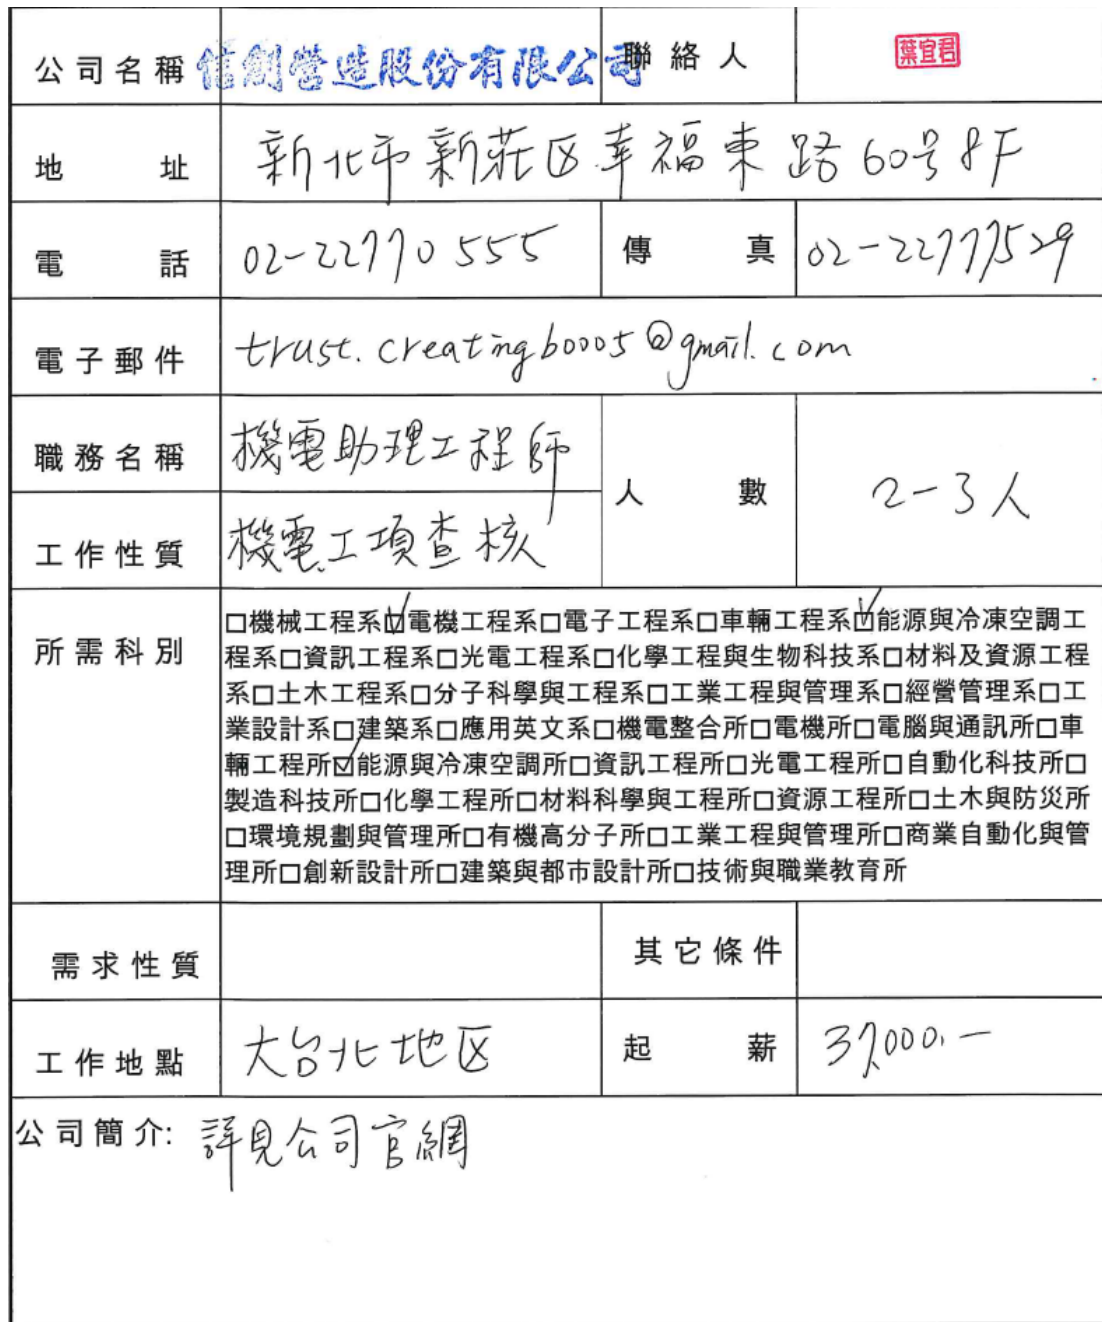 公司名稱 信創營造股份有限公司 聯絡人 葉宜君
地址 新北市新莊区幸福東路60号8F
電話 02-22770555 傳真 02-22777529
電子郵件 trust.creating60005@gmail.com
職務名稱 機電助理工程師
人數 2-3人
工作性質 機電工項查核
所需科別
□機械工程系☑電機工程系□電子工程系□車輛工程系☑能源與冷凍空調工
程系□資訊工程系□光電工程系□化學工程與生物科技系□材料及資源工程
系□土木工程系□分子科學與工程系□工業工程與管理系□經營管理系□工
業設計系□建築系□應用英文系□機電整合所□電機所□電腦與通訊所□車
輛工程所☑能源與冷凍空調所□資訊工程所□光電工程所□自動化科技所□
製造科技所□化學工程所□材料科學與工程所□資源工程所□土木與防災所
□環境規劃與管理所□有機高分子所□工業工程與管理所□商業自動化與管
理所□創新設計所□建築與都市設計所□技術與職業教育所
需求性質 其它條件
工作地點 大台北地区 起薪 37,000.-
公司簡介: 詳見公司官網